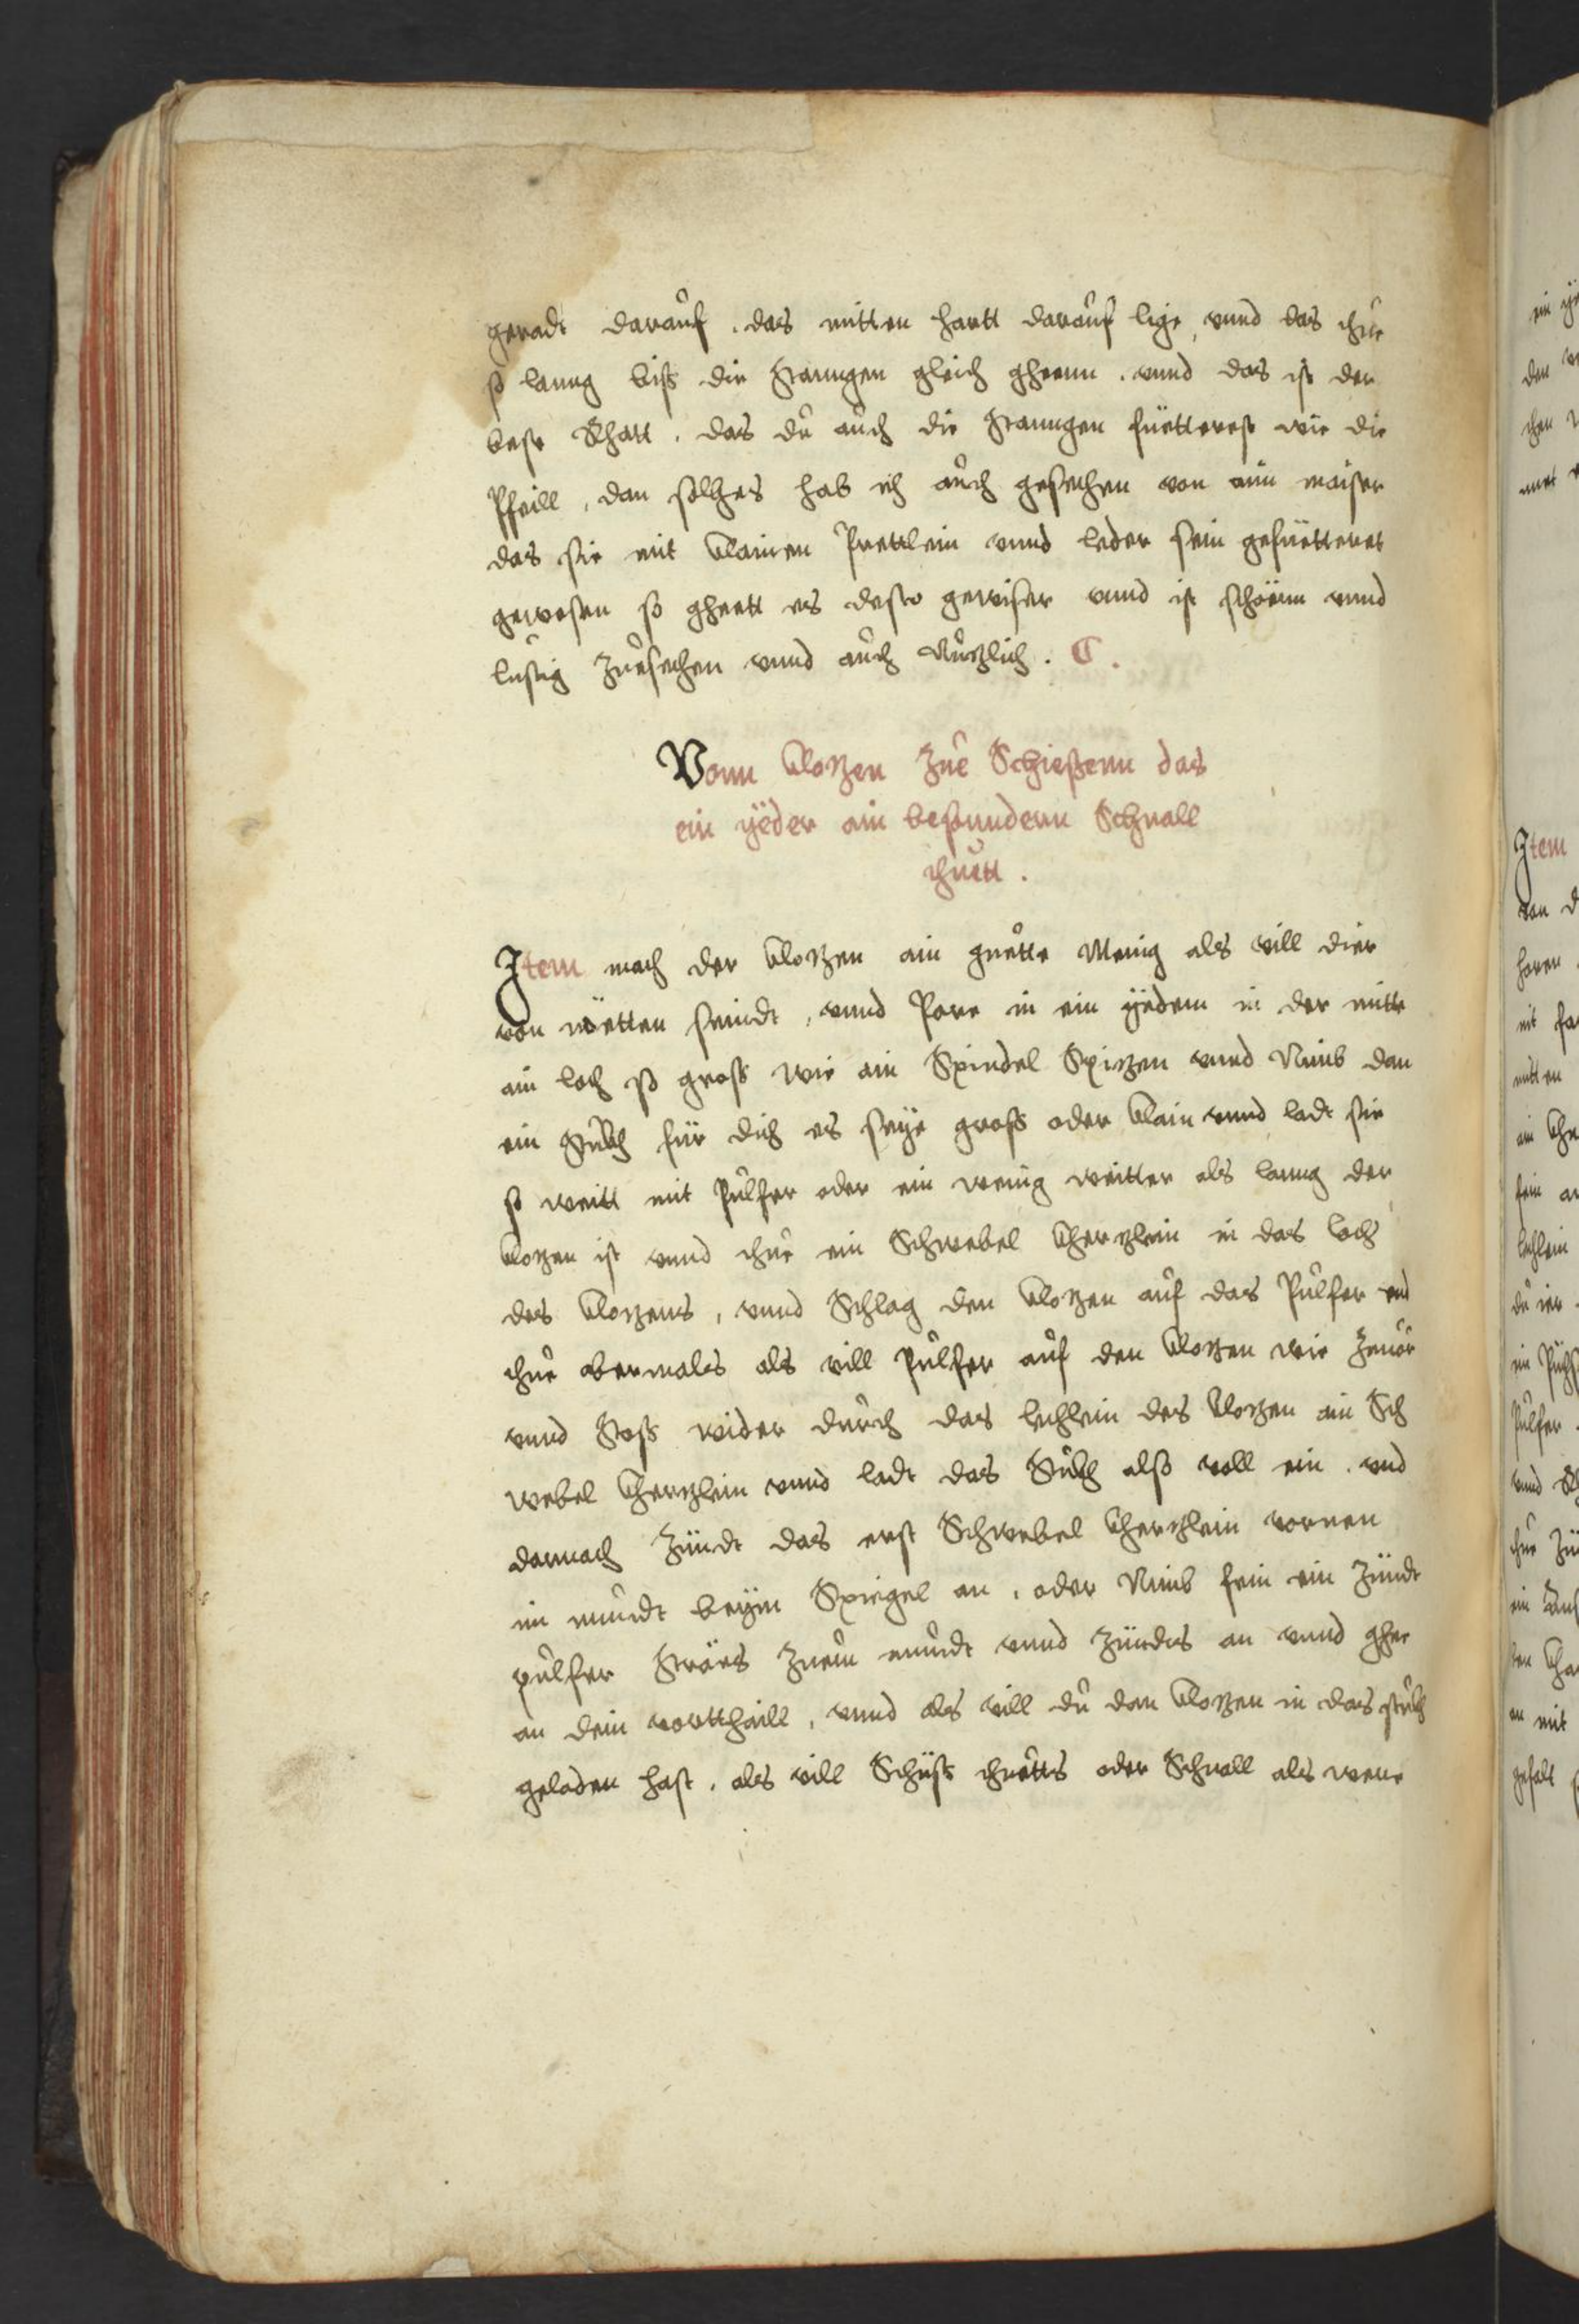 geradt darauf . das mitten hartt darauf lige, vnnd das thue
so lanng biß die Stanngen gleich gheenn . vnnd das ist der
best Rhatt . das du auch die Stanngen fuetterest wie die
Pfeill , dan solches hab ich auch gesechen von aim maister
das sie mit klainen Prettlein vnnd leder sein gefuetteret
gewesen so gheett es desto gewiser vnnd ist schöenn vnnd
lustig zuesechen vnnd auch Nuzlich . C .
Vonn klozen zue Schießenn das
ein yeder ain besunndern Schnall
thuett .
Item mach der klozen ain guette Menig als vill dier
von nöetten seindt , vnnd Pore in ein yedem in der mitte
ain loch so groß wie ain Spindel Spizen vnnd Nimb dan
ein Stuckh für dich es seye groß oder klain vnnd ladt sie
so weitt mit Pulfer oder ein wenig weitter als lanng der
klozen ist vnnd thue ein Schwebel kherzlein in das loch
des klozens , vnnd Schlag den klozen auf das Pulfer vnd
thue abermales als vill Pulfer auf den klozen wie zuuor
vnnd Stoß wider durch das lechlein des klozen ain Sch
webel kherzlein vnnd ladt das Stuckh also voll ein . vnd
darnach zündt das erst Schwebel kherzlein vornen
im mundt beym Spiegel an . oder Nimb fein ein zündt
pulfer Sträes zuem mundt vnnd zündes an vnnd ghee
an dein vortthaill , vnnd als vill du dan klozen in das stuckh
geladen hast , als vill Schüß thuetts oder Schnall als wene